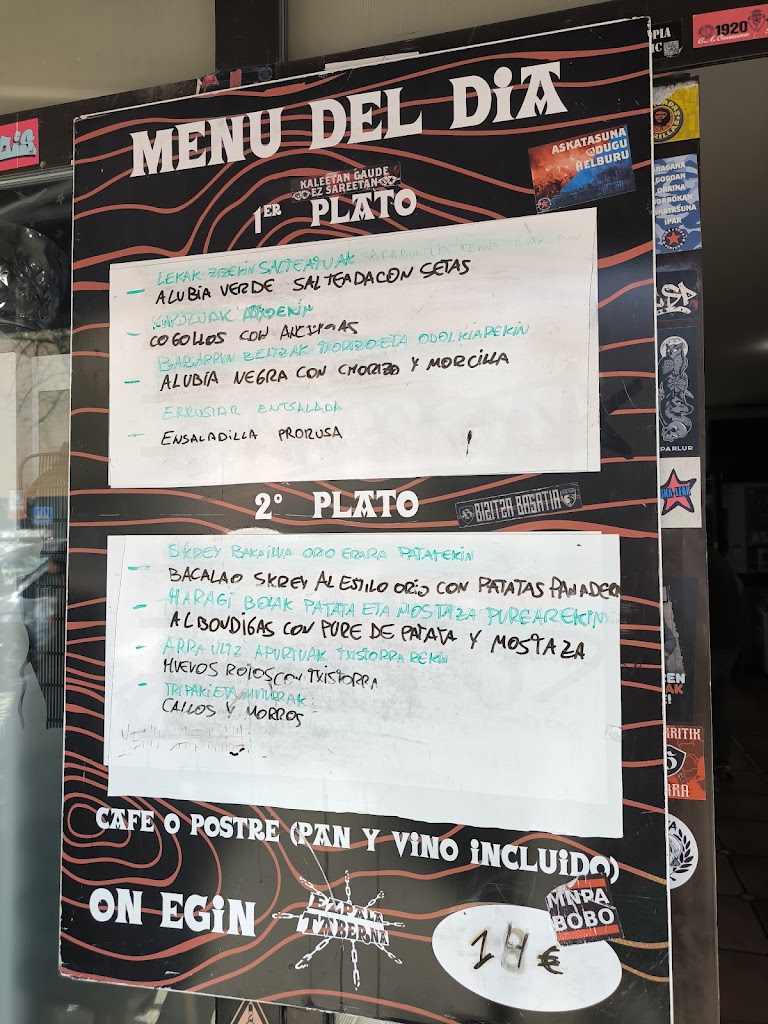 1920
MENU DEL DiA
ASKATASUNA
DUGU
HELBURU
KALEETAN GAUDE
EZ SAREETAN
1ER PLATO
LEKAK ZIZEKIN SALTEATUAK
ALUBIA VERDE SALTEADA CON SETAS
COGOLLOS CON
BABARRUN BELTZAK TXORIZO ETA ODOLKIAREKIN
ALUBIA NEGRA CON CHORIZO Y MORCILLA
ERRUSIAR ENTSALADA
ENSALADILLA PRORUSA
2° PLATO
BIZITZA BASATIA
SKREY BAKAILUA ORIO ERARA PATATEKIN
BACALAO SKREY AL ESTILO ORIO CON PATATAS PANADER
HARAGI BOLAK PATATA ETA MOSTAZA PUREAREKIN
ALBONDIGAS CON PURE DE PATATA Y MOSTAZA
ARRAULTZ APURTUAK TXISTORRAREKIN
HUEVOS ROJOS CON TXISTORRA
TRIPAKI ETA MUTURRAK
CALLOS Y MORROS
CAFE O POSTRE (PAN Y ViNO iNCLUiDO)
ON EGiN
EZPALA
TABERNA
14 €
MNRA
BOBO
PARLUR